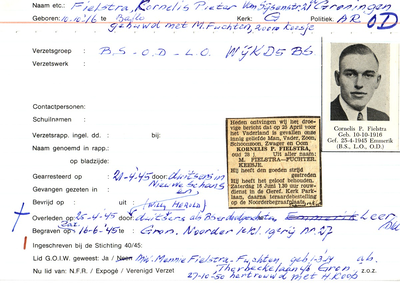 Naam etc.: Fielstra, Kornelis Pieter v.m. Groningen
Geboren: 10.10.'16 te Kerk: G Politiek A.R. O.D
gehuwd met M. Fuchten, zoon Keesje
Verzetsgroep B.S - O.D - L.O. WIJK D5 BS
Verzetswerk
Contactpersonen:
Schuilnamen
Verzetsrapp. ingel. dd. : bij:
Naam genoemd in rapp.:
op bladzijde:
Gearresteerd op -4-'45 door duitsers in
Gevangen gezeten in : Nieuwe Schans
Bevrijd op : door
Overleden op: 25-4-'45 door duitsers als Leer
Begraven op : 16-6-'45 te Gron. Noorder 27
Ingeschreven bij de Stichting 40/45:
Lid G.O.I.W. geweest: Ja / Neen Mw. Mennie Fielstra-Fuchten, geb.
Nu lid van: N.F.R. / Expogé / Verenigd Verzet Thorbeckelaan Gron. z.o.z.
27-10-50 hertrouwd met H. Koop
Heden ontvingen wij het droevige
bericht dat op 25 April voor
het Vaderland is gevallen onze
innig geliefde Man, Vader, Zoon,
Schoonzoon, Zwager en Oom
KORNELIS P. FIELSTRA,
oud 28 j. Uit aller naam:
M. FIELSTRA—FUCHTER.
KEESJE.
Hij heeft den goeden strijd
gestreden
Hij heeft het geloof behouden.
Zaterdag 16 Juni 1.30 uur rouwdienst
in de Geref. Kerk Parklaan,
daarna teraardebestelling
op de Noorderbegraafplaats.
Cornelis P. Fielstra
Geb. 10-10-1916
Gef. 25-4-1945 Emmerik
(B.S., L.O., O.D.)